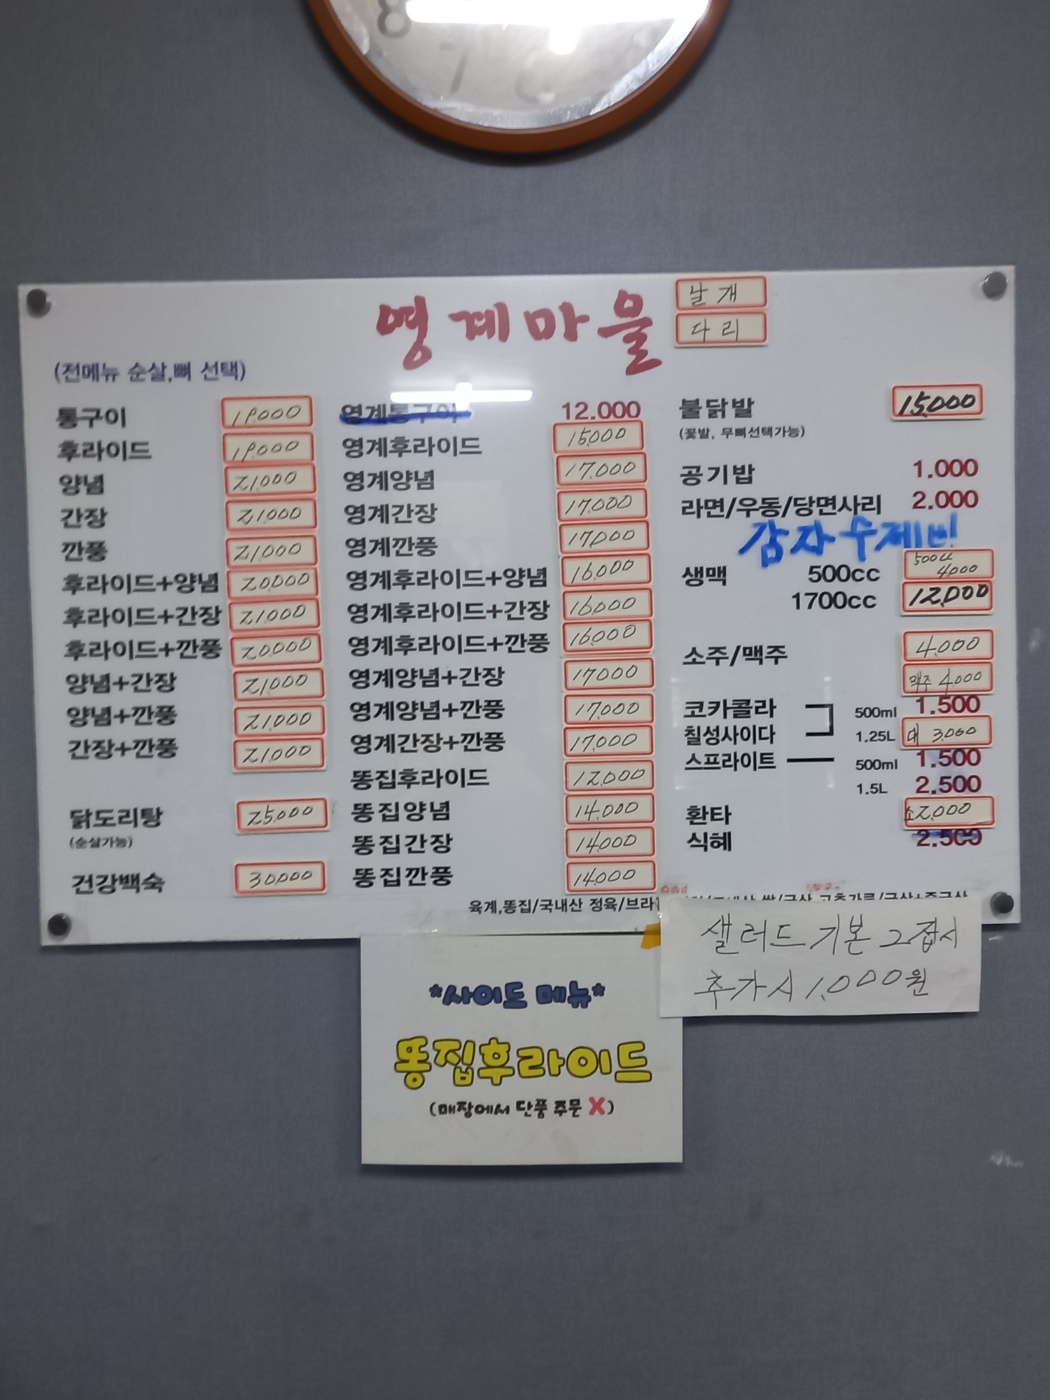 8
7
영계마을
날개
다리
(전메뉴 순살,뼈 선택)
통구이 19,000
후라이드 19,000
양념 21,000
간장 21,000
깐풍 21,000
후라이드+양념 20,000
후라이드+간장 21,000
후라이드+깐풍 20,000
양념+간장 21,000
양념+깐풍 21,000
간장+깐풍 21,000
닭도리탕 25,000
(순살가능)
건강백숙 30,000
영계통구이 12.000
영계후라이드 15,000
영계양념 17,000
영계간장 17,000
영계깐풍 17,000
영계후라이드+양념 16,000
영계후라이드+간장 16,000
영계후라이드+깐풍 16,000
영계양념+간장 17,000
영계양념+깐풍 17,000
영계간장+깐풍 17,000
똥집후라이드 12,000
똥집양념 14,000
똥집간장 14,000
똥집깐풍 14,000
불닭발 15,000
(꽃발, 무뼈선택가능)
공기밥 1.000
라면/우동/당면사리 2.000
감자수제비!
생맥 500cc 500cc 4,000
1700cc 12,000
소주/맥주 4,000
맥주 4,000
코카콜라 500ml 1.500
칠성사이다 1.25L 대 3,000
스프라이트 500ml 1.500
1.5L 2.500
환타 소 2,000
식혜 2.500
육계,똥집/국내산 정육/브라질
샐러드 기본 2접시
추가시 1,000원
*사이드 메뉴*
똥집후라이드
(매장에서 단품 주문 X)